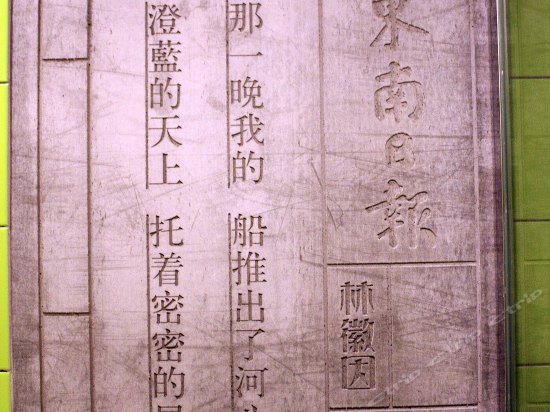 東南日報
林徽因
那一晚我的 船推出了河
澄藍的天上 托着密密的